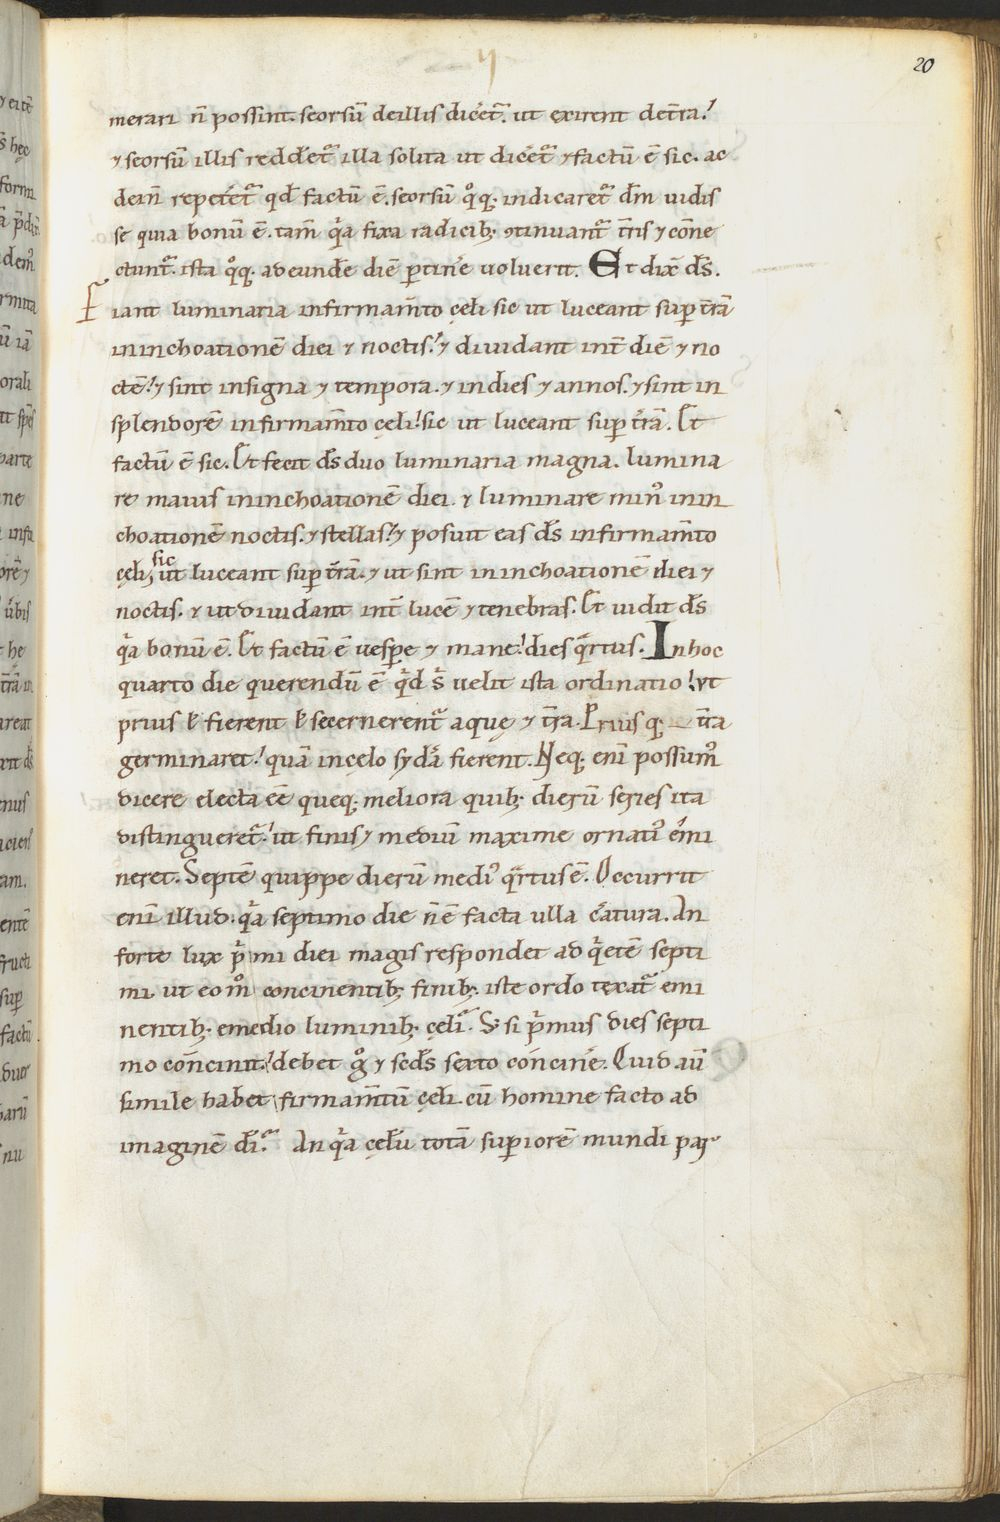 20
merari n̄ possint. seorsū deillis dicet᷑. ut exirent det̄ra.
⁊ seorsū illis reddet᷑ illa solita ut dicet᷑ ⁊ factū ē sic. ac
dein̄ repetet᷑ qđ factū ē. seorsū qͦq; indicaret᷑ dm̄ uidis
se quia bonū ē. tam̄ qͥa fixa radicib; ꝯtinuant᷑ t̄ris ⁊ cōne
ctunt᷑. ista qͦq; adeundē diē ꝑtinē uoluerit. Et dix̄ ds̄.
Fiant luminaria infirmam̄to cęli sic ut luceant suꝑ t̄rā
ininchoationē diei ⁊ noctis. ⁊ diuidant int̄ diē ⁊ no
ctē. ⁊ sint insigna ⁊ tempora. ⁊ indies ⁊ annos. ⁊ sint in
splendorē infirmam̄to cęli. sic ut luceant suꝑ t̄rā. Et
factū ē sic. Et fecit ds̄ duo luminaria magna. lumina
re maius ininchoationē diei. ⁊ luminare minꝰ inin
choationē noctis. ⁊ stellas. ⁊ posuit eas ds̄ infirmam̄to
sic
cęli, ut luceant suꝑ t̄rā. ⁊ ut sint ininchoationē diei ⁊
noctis. ⁊ ut diuidant int̄ lucē ⁊ tenebras. Et uidit ds̄
qͥa bonū ē. Et factū ē uesꝑe ⁊ mane. dies qͣrtus. Inhoc
quarto die querendū ē qͥd sͥ uelit ista ordinatio. ut
prius ł fierent ł secernerent᷑ aquę ⁊ t̄ra. Prius q; t̄ra
germinaret. quā incęlo sydͣa fierent. Neq; enī possumꝰ
dicere electa eē queq; meliora quib; dierū series ita
distingueret᷑. ut finis ⁊ mediū maxime ornatꝰ emi
neret. Septē quippe dierū mediꝰ qͣrtus ē. Occurrit
enī illud. qͥa septimo die n̄ ē facta ulla c̄atura. An
forte lux pͥmi diei magis respondet ad qͥetē septi
mi. ut eo mͦ concinentib; finib; iste ordo texat᷑ emi
nentib; emedio luminib; cęli. S; si pͥmus dies septi
mo concinit. debet gͦ ⁊ scds̄ sexto concinē. Quid aū
simile habet firmam̄tū cęli. cū homine facto ad
imaginē dī. An qͥa cęlū totā suꝑiorē mundi par